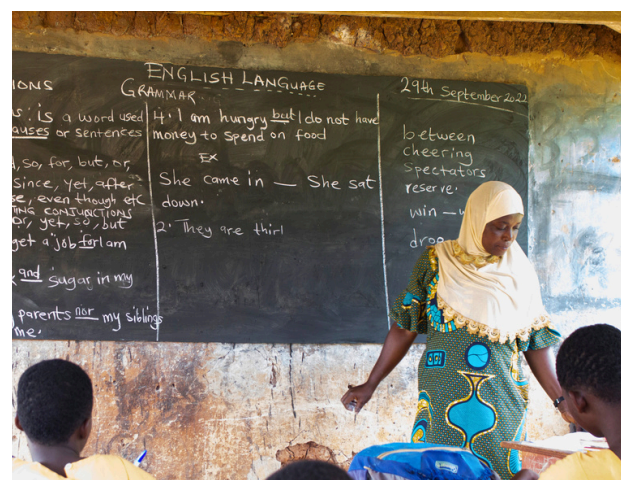 ENGLISH LANGUAGE
GRAMMAR
29th September 2022
IONS
is a word used
auses or sentences
so, for, but, or,
since, yet, after
se, even though etc
TING CONJUNCTIONS
or, yet, so, but
get a job for I am
and sugar in my
parents nor my siblings
me.
4. I am hungry but I do not have
money to spend on food
Ex
She came in — She sat
down.
2. They are thirl
between
cheering
Spectators
reserve.
win —
drop